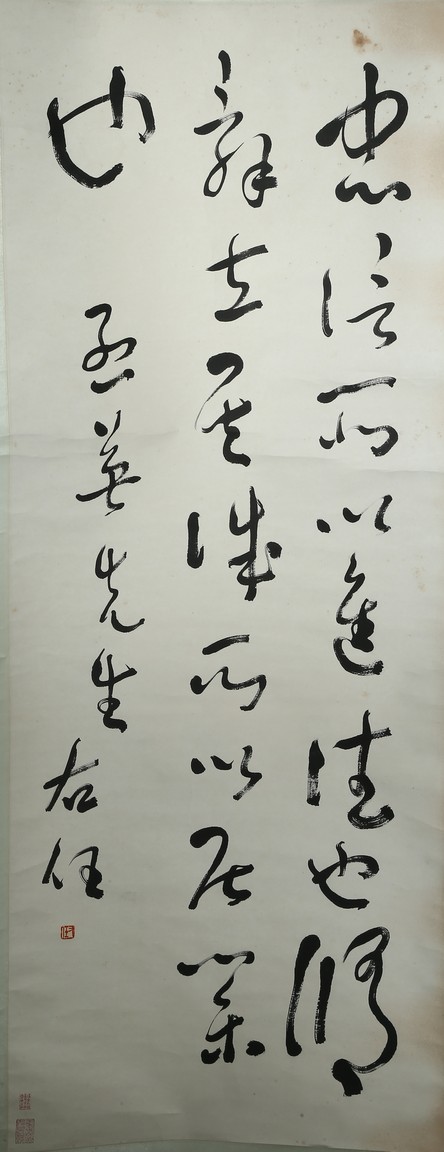 忠信所以進德也脩
辭立其誠所以居業
也 孟英先生 右任